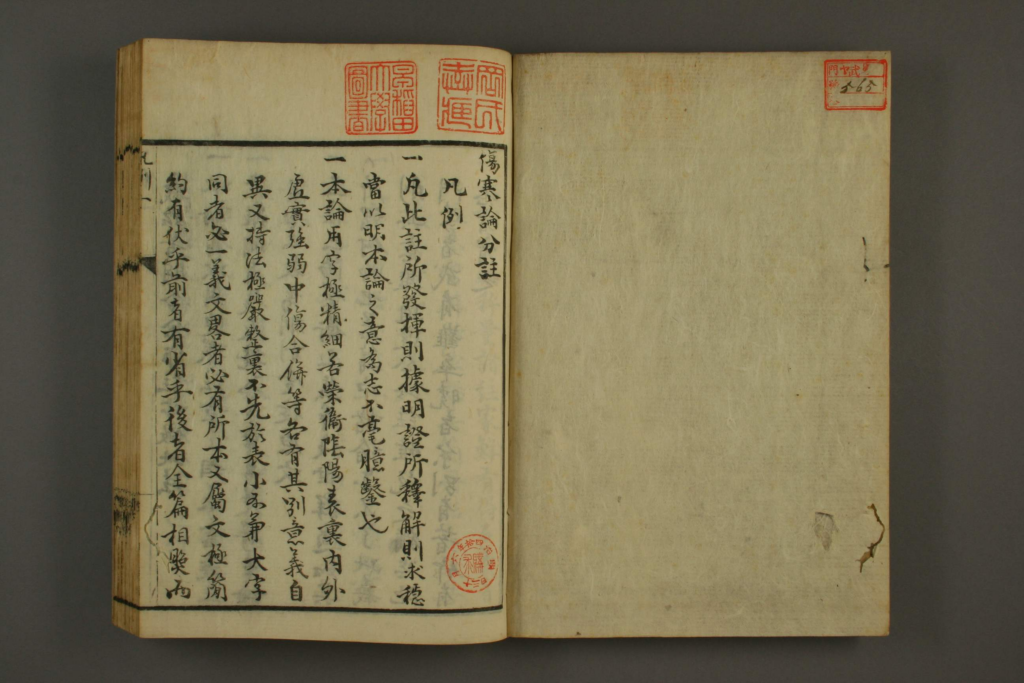 傷寒論分註
凡例
一凡此註所發揮則據明證所釋解則求穩
當以明本論之意為志不毫臆鑿也
一本論用字極精細若榮衛陰陽表裏內外
虛實強弱中傷合併等各有其別意義自
異又持法極嚴整裏不先於表小不兼大字
同者必一義文畧者必有所本又屬文極簡
約有伏乎前者有省乎後者全篇相照而
早稲田大學圖書
565